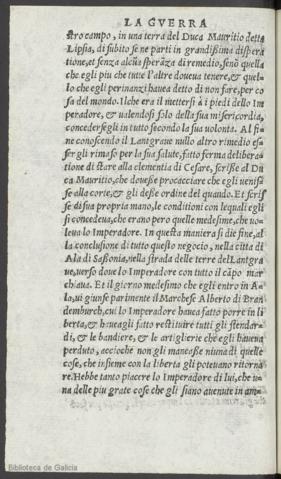 LA GVERRA
stro campo, in una terra del Duca Mauritio detta
Lipsia, di subito se ne parti in grandissima dispera
tione, et senza alcũa sperãza di remedio, senõ quella
che egli piu che tutte l'altre doueua tenere, & quel-
lo che egli perinanzi haueа detto di non fare, per co
sa del mondo. Ilche era il mettersi à i piedi dello Im
peradore, & ualendosi solo della sua misericordia,
concedersegli in tutto secondo la sua uolonta. Al fi=
ne conoscendo il Lantgraue nullo altro rimedio es-
sergli rimaso per la sua salute, fatto ferma delibera-
tione di stare alla clementia di Cesare, scrisse al Du
ca Mauritio, che douesse procacciare che egli uenis=
se alla corte, & gli desse ordine del quando. Et scris
se di sua propria mano, le conditioni con lequali egli
si concedeua, che erano pero quelle medesime, che uo-
leua lo Imperadore. In questa maniera si die fine, al
la conclusione di tutto questo negocio, nella citta di
Ala di Sassonia, nella strada delle terre del Lantgra
ue, uerso doue lo Imperadore con tutto il cãpo mar
chiaua. Et il giorno medesimo che egli entro in A-
la, ui giunse parimente il Marchese Alberto di Bran
demburch, cui lo Imperadore hauea fatto porre in li
berta, & haueagli fatto restituire tutti gli stendar-
di, & le bandiere, & le artiglierie che egli haueua
perduto, accioche non gli mancasse niuna di quelle
cose, che insieme con la liberta gli poteuano ritorna
re. Hebbe tanto piacere lo Imperadore di lui, che u=
na delle piu grate cose che gli siano auenute in am-
Biblioteca de Galicia